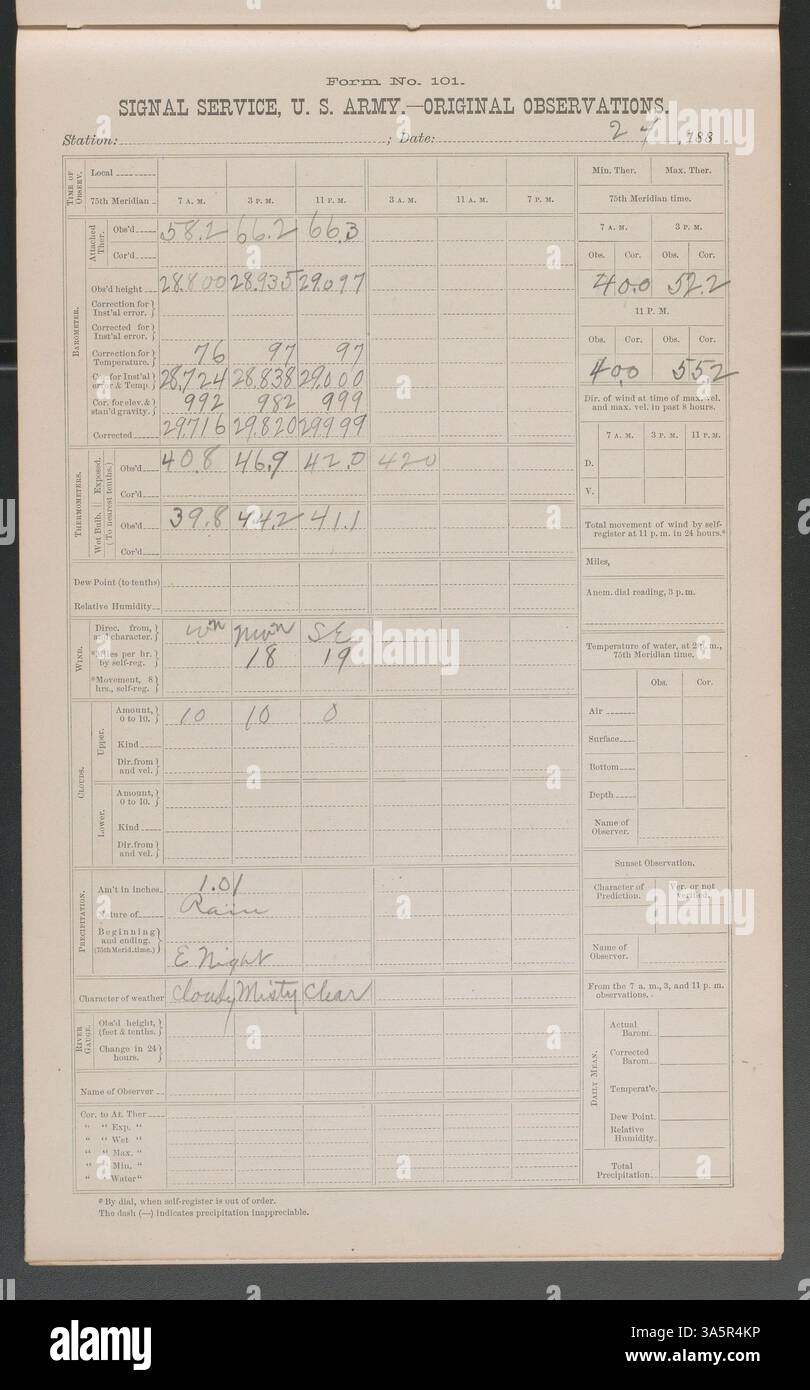 Form No. 101.
SIGNAL SERVICE, U. S. ARMY.—ORIGINAL OBSERVATIONS.
Station: ; Date: 24 , 188
TIME OF OBSERV.
Local
75th Meridian 7 A. M. 3 P. M. 11 P. M. 3 A. M. 11 A. M. 7 P. M.
BAROMETER.
Attached Ther.
Obs'd 58.2 66.2 66.3
Cor'd
Obs'd height 28.800 28.935 29.097
Correction for Inst'al error.
Corrected for Inst'al error.
Correction for Temperature. 76 97 97
Cor. for Inst'al error & Temp. 28.724 28.838 29.000
Cor. for elev. & stan'd gravity. 992 982 999
Corrected 29.716 29.820 29.999
THERMOMETERS.
Exposed.
Wet Bulb.
(To nearest tenths.)
Obs'd 40.8 46.9 42.0 42.0
Cor'd
Obs'd 39.8 44.2 41.1
Cor'd
Dew Point (to tenths)
Relative Humidity
WIND.
Direc. from, and character. SE
*Miles per hr. by self-reg. 18 19
*Movement, 8 hrs., self-reg.
CLOUDS.
Upper.
Amount, 0 to 10. 10 10 0
Kind
Dir. from and vel.
Lower.
Amount, 0 to 10.
Kind
Dir. from and vel.
PRECIPITATION.
Am't in inches 1.01
Nature of Rain
Beginning and ending. (75th Merid. time.)
E Night
Character of weather Cloudy Misty Clear
RIVER GAUGE.
Obs'd height, (feet & tenths.)
Change in 24 hours.
Name of Observer
Cor. to At. Ther
" " Exp. "
" " Wet "
" " Max. "
" " Min. "
" " Water "
* By dial, when self-register is out of order.
The dash (—) indicates precipitation inappreciable.
Min. Ther. Max. Ther.
75th Meridian time.
7 A. M. 3 P. M.
Obs. Cor. Obs. Cor.
40.0 52.2
11 P. M.
Obs. Cor. Obs. Cor.
40.0 55.2
Dir. of wind at time of max. vel. and max. vel. in past 8 hours.
7 A. M. 3 P. M. 11 P. M.
D.
V.
Total movement of wind by self-register at 11 p. m. in 24 hours.*
Miles,
Anem. dial reading, 3 p. m.
Temperature of water, at 2 p. m., 75th Meridian time.
Obs. Cor.
Air
Surface
Bottom
Depth
Name of Observer.
Sunset Observation.
Character of Prediction. Ver. or not verified.
Name of Observer.
From the 7 a. m., 3, and 11 p. m. observations.
DAILY MEAN.
Actual Barom
Corrected Barom
Temperat'e.
Dew Point.
Relative Humidity.
Total Precipitation
alamy
a
A3A5R4KP
www.alamy.com